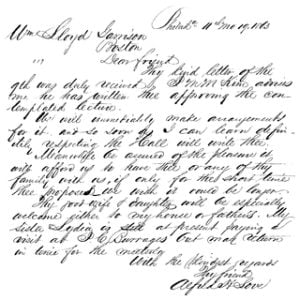 Philada 11th mo 19, 1863
Wm Lloyd Garrison
Boston
Dear friend
Thy kind letter of the
9th was duly received & J M M Kim advises
me he has written thee approving the con-
templated lecture.
We will immediately make arrangements
for it, and so soon as I can learn defin-
itely respecting the Hall will write thee.
Meanwhile be assured of the pleasure it
will afford us to have thee or any of thy
family with us, if only for the short time
thee proposes, we wish it could be longer.
Thy good wife & daughter will be especially
welcome either to my house or father's. My
Sister Lydia is still at present paying a
visit at J E Burrages but may return
in time for the meeting
With the kindest regards
Thy friend
Alfred H Love